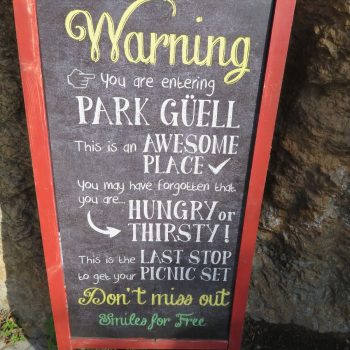 Warning
You are entering
PARK GÜELL
This is an AWESOME
PLACE
You may have forgotten that
you are... HUNGRY or
THIRSTY!
This is the LAST STOP
to get your PICNIC SET
Don't miss out
Smiles for Free